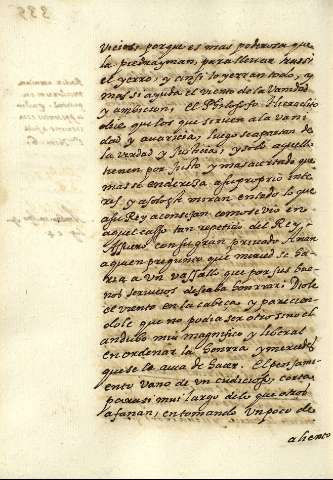 vicios, porque es mas poderosa que
la piedrayman, para llevar tras si
el yerro, y ansi lo yerran todo, y
mas si ayuda el viento de la vanidad
y ambicion; El Philosofo Heraclito
dice que los que sirven a la vani
dad y avaricia, luego se apartan de
la verdad y Justicia, y solo aquello
tienen por Justo y mas acertado que
mas se endereza a su proprio inte
res, y a solo si miran en todo lo que
a su Rey aconsejan como se vio en
aquel casso tan repetido del Rey
Assuero con su gran privado Aman
a quien pregunto que merced se ha
ria a un vassallo que por sus bue
nos servicios deseaba honrrar; Diole
el viento en la cabeza y parecien
dole que no podia ser otro sino el
andubo mui magnifico y liberal
en ordenar la honrra y mercedes
que se le avia de hacer. El pensami
ento vano de un cudicioso, corta
para si mui largo de lo que otros
afanan, en tomando un poco de
aliento